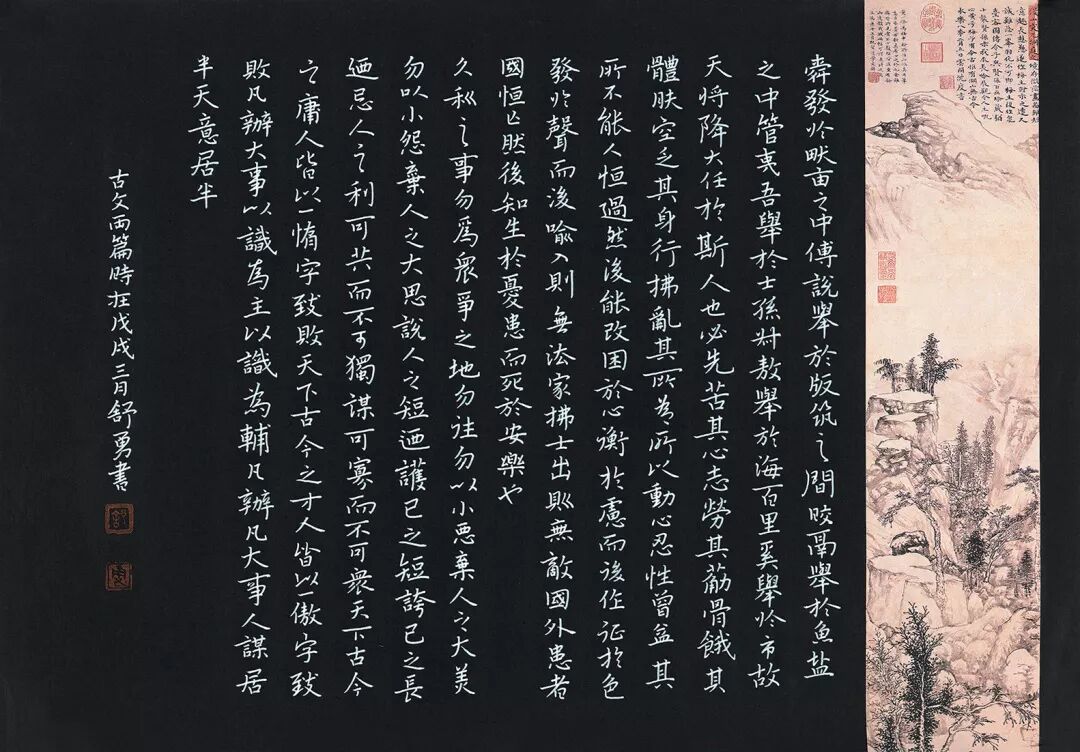 舜發於畎亩之中傅說舉於版筑之間胶鬲舉於魚盐
之中管夷吾舉於士孫叔敖舉於海百里奚舉於市故
天將降大任於斯人也必先苦其心志勞其筋骨餓其
體肤空乏其身行拂亂其所為所以動心忍性曾益其
所不能人恒過然後能改困於心衡於慮而後作征於色
發於聲而後喻入則無法家拂士出則無敵國外患者
國恒亡然後知生於憂患而死於安樂也
久利之事勿爲衆爭之地勿往勿以小惡棄人之大美
勿以小怨棄人之大恩說人之短迺護己之短誇己之長
迺忌人之利可共而不可獨謀可寡而不可衆天下古今
之庸人皆以一惰字致敗天下古今之才人皆以一傲字致
敗凡辦大事以識為主以識為輔凡辦凡大事人謀居
半天意居半
古文两篇時在戊戌三月舒勇書